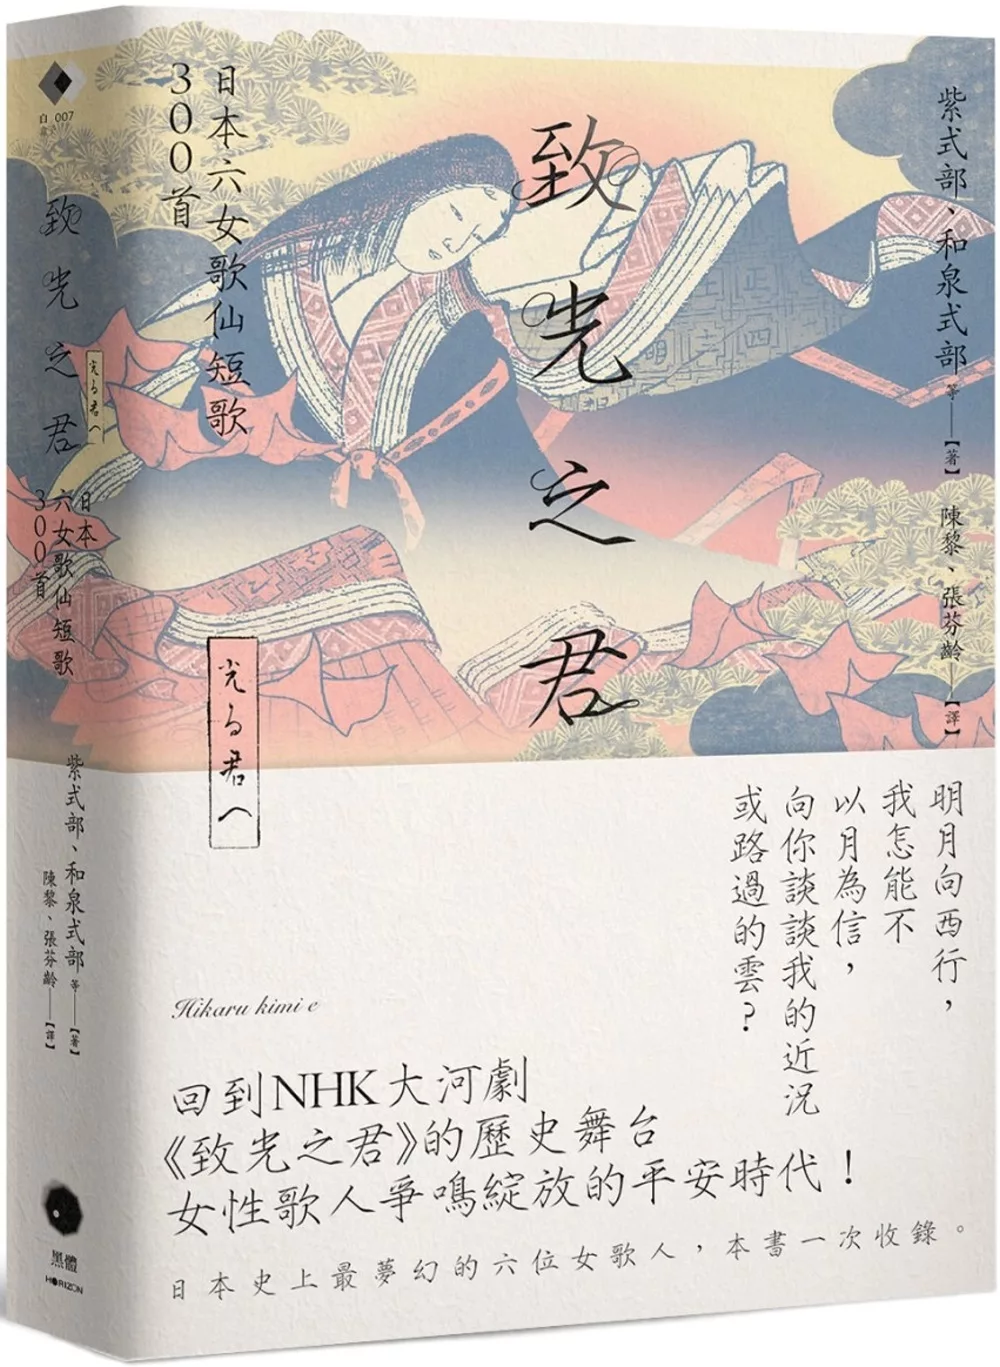 紫式部、和泉式部等——【著】
陳黎、張芬齡——【譯】
致光之君
日本六女歌仙短歌
300首
光る君へ
明月向西行，
我怎能不
以月為信，
向你談談我的近況
或路過的雲？
Hikaru kimi e
回到NHK大河劇
《致光之君》的歷史舞台
女性歌人爭鳴綻放的平安時代！
日本史上最夢幻的六位女歌人，本書一次收錄。
白盒 007
致光之君
光る君へ
日本
六女歌仙短歌
300首
紫式部、和泉式部等——【著】
陳黎、張芬齡——【譯】
黑體
HORIZON